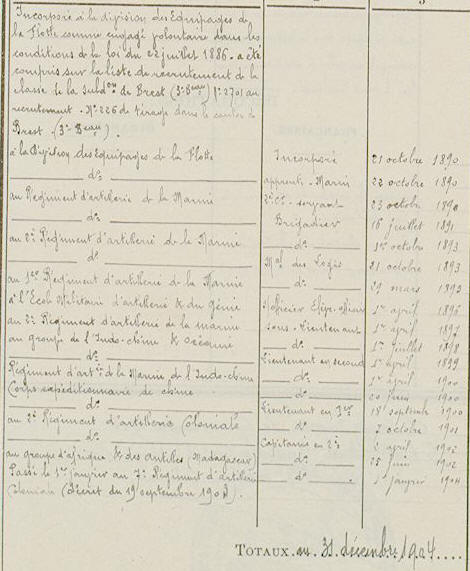 Incorporé à la division des Equipages de
la Flotte comme engagé volontaire dans les
conditions de la loi du 22 juillet 1886 - a été
compris sur la liste de recrutement de la
classe de la subd.on de Brest (3e Beau) 1.270) au
recrutement - No 226 de tirage dans le canton de
Brest (3e Beau)
à la Division des Equipages de la Flotte Incorporé 21 octobre 1890
do apprenti-Marin 22 octobre 1890
au Régiment d'artillerie de la Marine 2e Ct servant 23 octobre 1890
do Brigadier 16 juillet 1891
au 2e Régiment d'artillerie de la Marine do 1er octobre 1893
do Mal des Logis 21 octobre 1893
au 1er Régiment d'artillerie de la Marine do 29 mars
à l'Ecole Militaire d'artillerie & du génie 1er avril
au 2e Régiment d'artillerie de la marine sous-Lieutenant 1er avril
au groupe de l'Indo-chine do 1er juillet 1898
do Lieutenant en second avril 1899
Régiment d'artie de la Marine de l'Indo-chine do 1er avril 1900
Corps expéditionnaire de chine do 20 juin 1900
do Lieutenant en 1er 18 septembre 1900
au 2e Régiment d'artillerie Coloniale do octobre 1901
do Capitaine en 2d avril 1902
au groupe d'afrique & des antilles (Madagascar) do 25 juin 1902
Passé le 1er janvier au 7e Régiment d'artillerie do janvier 1904
Coloniale (Décret du 19 septembre 1903).
TOTAUX. au 31 décembre 1904....